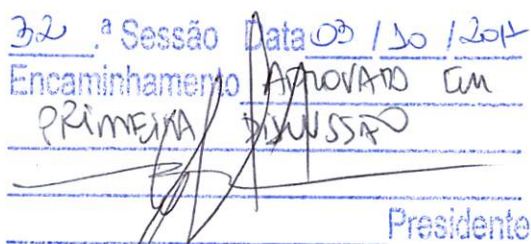 32.ª Sessão Data 03 / 10 / 2017
Encaminhamento APROVADO EM
PRIMEIRA DISCUSSÃO
Presidente